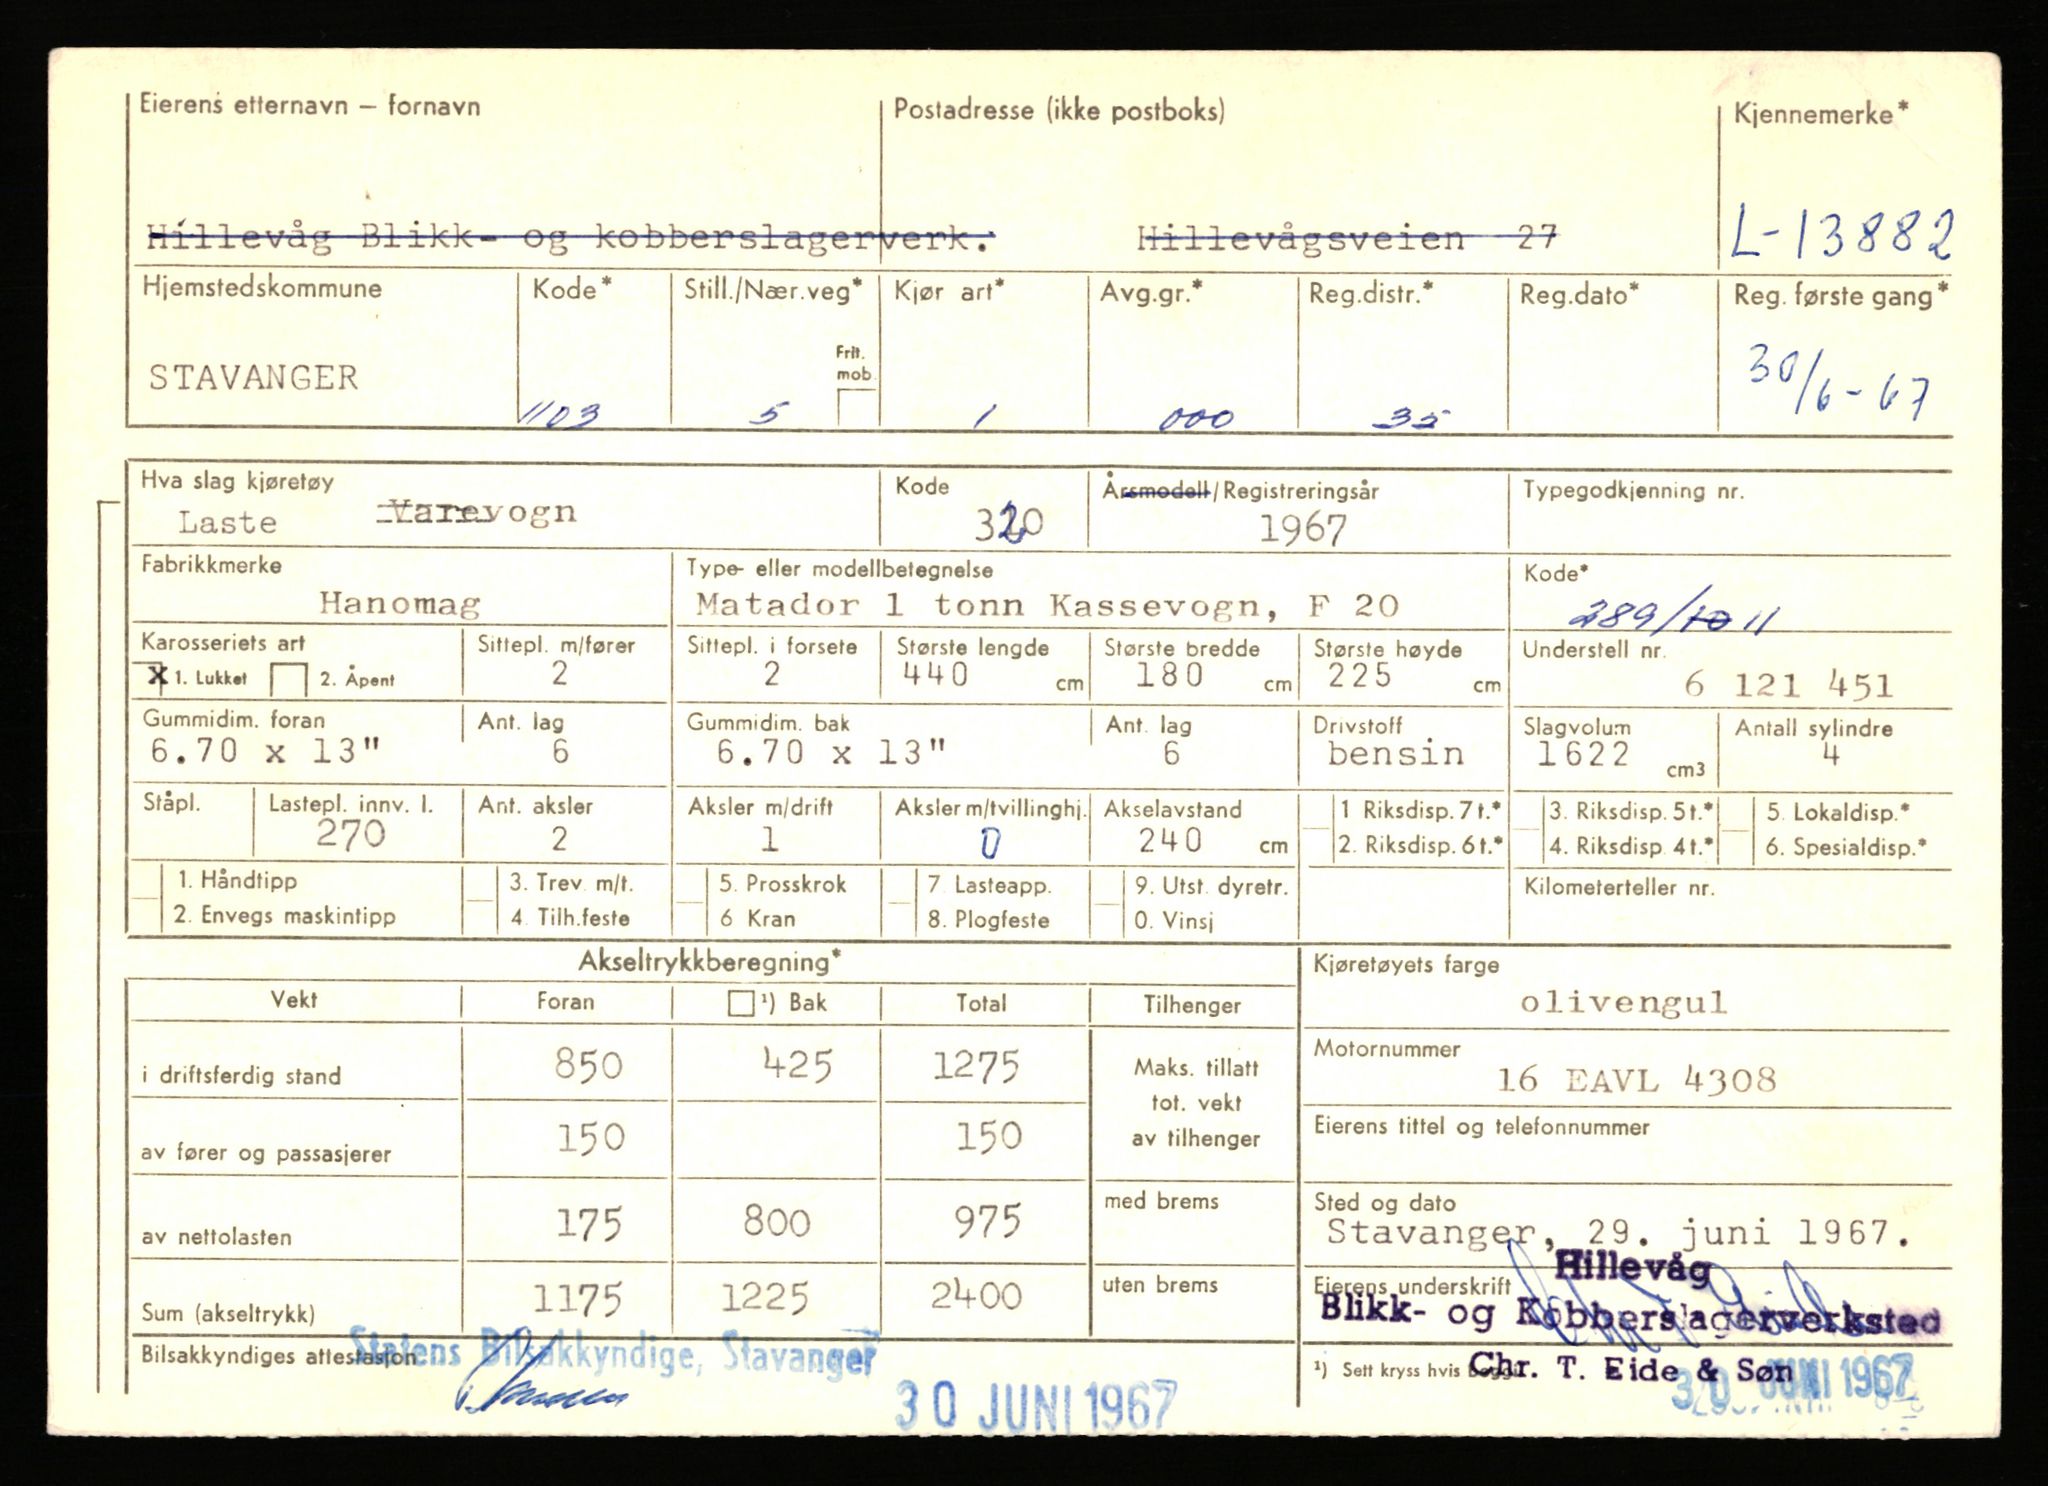 Eierens etternavn – fornavn Postadresse (ikke postboks) Kjennemerke*
Hillevåg Blikk- og kobberslagerverk. Hillevågsveien 27 L-13882
Hjemstedskommune Kode* Still./Nær.veg* Kjør art* Avg.gr.* Reg.distr.* Reg.dato* Reg. første gang*
Frit. mob.
STAVANGER 1103 5 1 000 35 30/6-67
Hva slag kjøretøy Kode Årsmodell/Registreringsår Typegodkjenning nr.
Laste Varevogn 320 1967
Fabrikkmerke Type- eller modellbetegnelse Kode*
Hanomag Matador 1 tonn Kassevogn, F 20 289/10 11
Karosseriets art Sittepl. m/fører Sittepl. i forsete Største lengde Største bredde Største høyde Understell nr.
X 1. Lukket 2. Åpent 2 2 440 cm 180 cm 225 cm 6 121 451
Gummidim. foran Ant. lag Gummidim. bak Ant. lag Drivstoff Slagvolum Antall sylindre
6.70 x 13" 6 6.70 x 13" 6 bensin 1622 cm3 4
Ståpl. Lastepl. innv. l. Ant. aksler Aksler m/drift Aksler m/tvillinghj. Akselavstand 1 Riksdisp. 7 t.* 3. Riksdisp. 5 t.* 5. Lokaldisp.*
270 2 1 0 240 cm 2. Riksdisp. 6 t.* 4. Riksdisp. 4 t.* 6. Spesialdisp.*
1. Håndtipp 3. Trev. m/t. 5. Prosskrok 7 Lasteapp. 9. Utst. dyretr. Kilometerteller nr.
2. Envegs maskintipp 4. Tilh.feste 6 Kran 8. Plogfeste 0. Vinsj
Akseltrykkberegning* Kjøretøyets farge
Vekt Foran ¹) Bak Total Tilhenger olivengul
i driftsferdig stand 850 425 1275 Maks. tillatt tot. vekt av tilhenger Motornummer
16 EAVL 4308
av fører og passasjerer 150 150 Eierens tittel og telefonnummer
av nettolasten 175 800 975 med brems Sted og dato
Stavanger, 29. juni 1967.
Sum (akseltrykk) 1175 1225 2400 uten brems Eierens underskrift
Hillevåg
Blikk- og Kobberslagerverksted
Chr. T. Eide & Søn
Bilsakkyndiges attestasjon Statens Bilsakkyndige, Stavanger
¹) Sett kryss hvis boggi
30 JUNI 1967
30 JUNI 1967